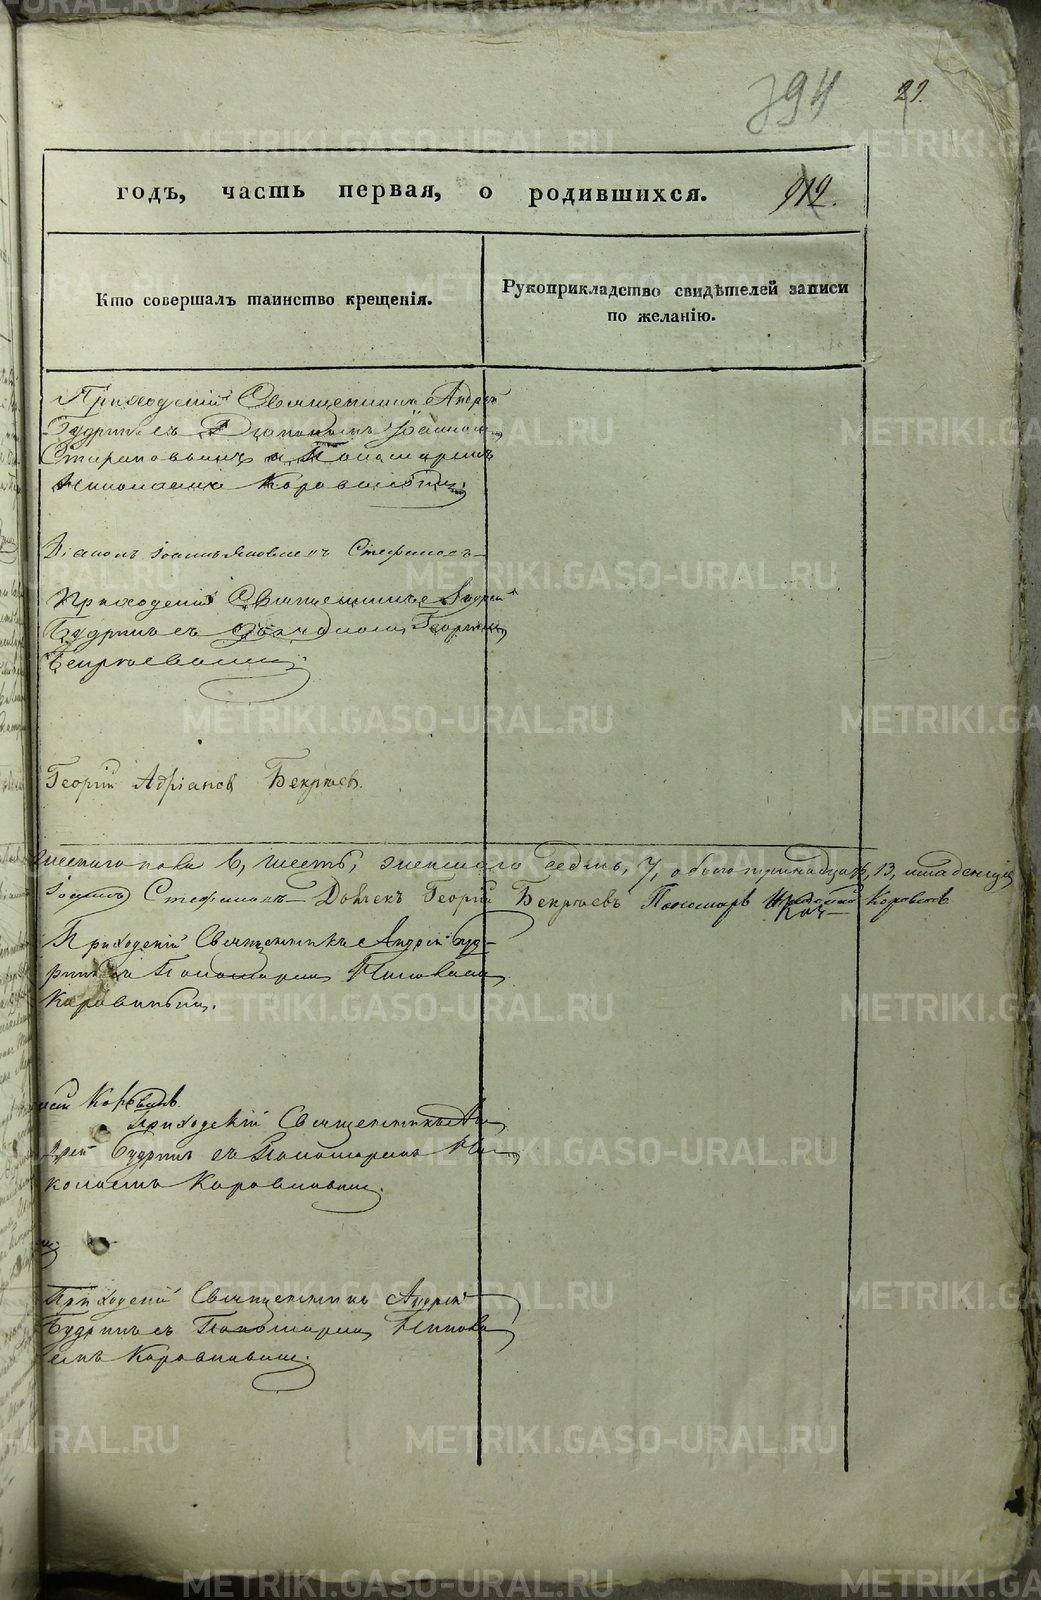 394
29.
годъ, часть первая, о родившихся.
912.
Кто совершалъ таинство крещенія.
Рукоприкладство свидѣтелей записи
по желанію.
Приходскій Священникъ Андрей
Будринъ съ Діакономъ Іоанномъ
Стефановымъ и Пономаремъ
Николаемъ Коровинымъ.
Діаконъ Іоаннъ Стефановъ
Приходскій Священникъ Андрей
Будринъ съ Дьячкомъ Георгіем
Бекряевымъ.
Георгій Адріановъ Бекряевъ.
пола 6, шесть, женскаго седмь, 7, обоего тринадцать, 13, младенцев
Іоаннъ Стефановъ Дьячекъ Георгій Бекряевъ Пономарь Коровинъ
Приходскій Священникъ Андрей Буд-
ринъ съ Пономаремъ Николаемъ
Коровинымъ.
Коровинъ
Приходскій Священникъ Ан
дрей Будринъ съ Пономаремъ Ни
колаемъ Коровинымъ.
Приходскій Священникъ Андрей
Будринъ съ Пономаремъ Никола
емъ Коровинымъ.
METRIKI.GASO-URAL.RU